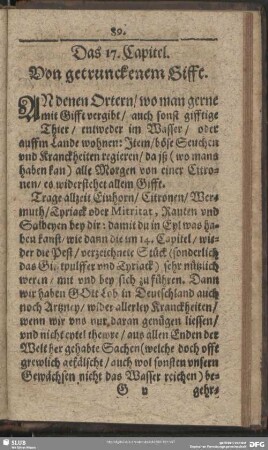 89.
Das 17. Capitel.
Von getrunckenem Giffe.
AN denen Ortern / wo man gerne
mit Gifft vergibt / auch sonst gifftige
Thier / entweder im Wasser / oder
auffm Lande wohnen: Item / böse Seuchen
vnd Kranckheiten regieren / da jß (wo mans
haben kan) alle Morgen von einer Citro-
nen / es widerstehet allem Gifft.
Trage allzeit Einhorn / Citronen / Wer-
muth / Tyriack oder Mitritat, Rauten vnd
Salbeyen bey dir: damit du in Eyl was ha-
ben kanst / wie dann die im 14. Capitel / wie-
der die Pest / verzeichnete Stück (sonderlich
das Gifftpulffer vnd Tyriack) sehr nützlich
weren / mit vnd bey sich zu führen. Dann
wir haben GOtt Lob in Deutschland auch
noch Artzney / wider allerley Kranckheiten /
wenn wir vns nur daran genügen liessen /
vnd nicht eytel thewre / aus allen Enden der
Welt her gehabte Sachen (welche doch offt
grewlich gefälscht / auch wol sonsten vnsern
Gewächsen nicht das Wasser reichen) be-
G v
gehr-
SLUB